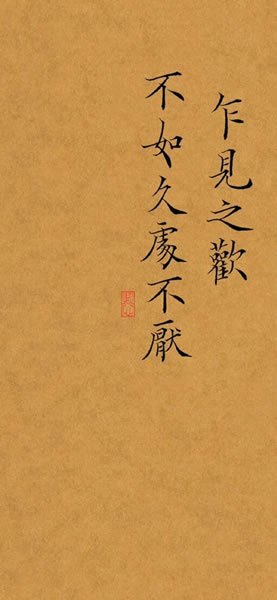 乍見之歡
不如久處不厭